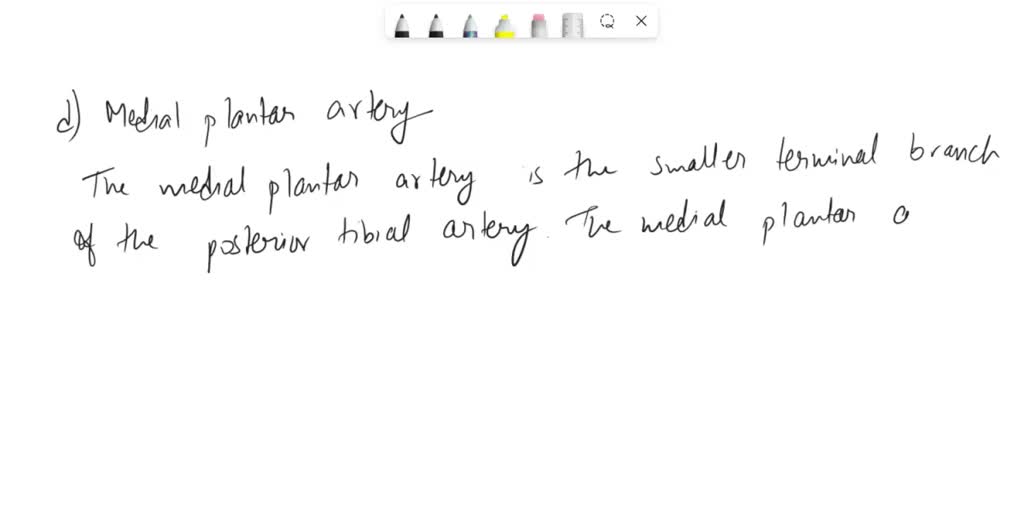 d) Medial plantar artery
The medial plantar artery is the smaller terminal branch
of the posterior tibial artery. The medial plantar a